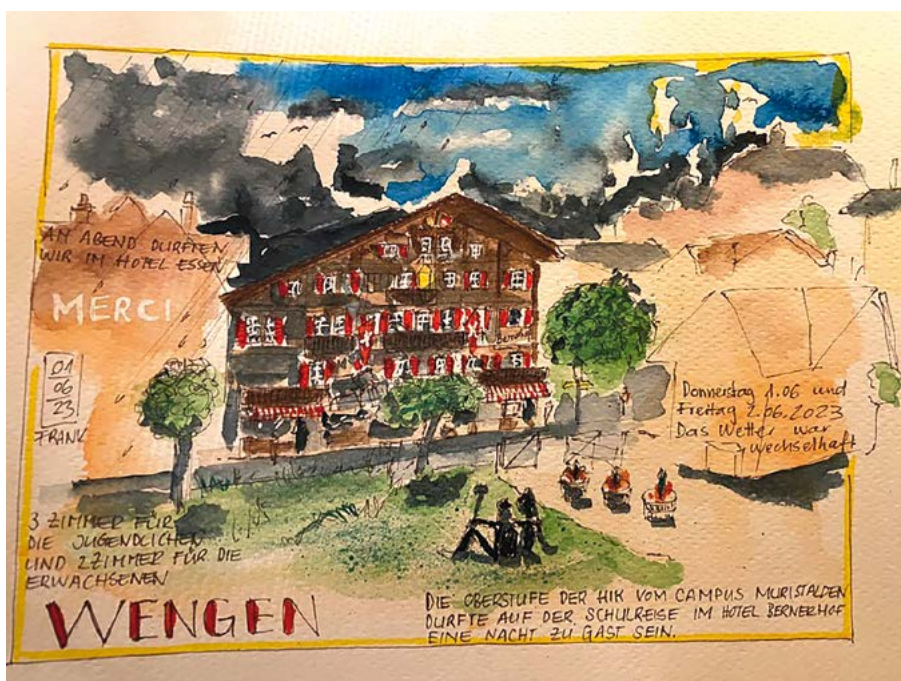 AM ABEND DURFTEN
WIR IM HOTEL ESSEN
MERCI
01
06
23
FRANK
Donnerstag 1.06 und
Freitag 2.06.2023
Das Wetter war
wechselhaft
3 ZIMMER FÜR
DIE JUGENDLICHEN
UND 2 ZIMMER FÜR DIE
ERWACHSENEN
WENGEN
DIE OBERSTUFE DER HIK VOM CAMPUS MURISTALDEN
DURFTE AUF DER SCHULREISE IM HOTEL BERNERHOF
EINE NACHT ZU GAST SEIN.